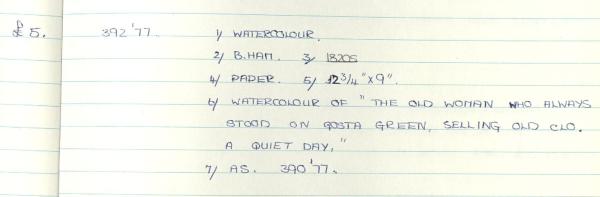 £5. 392'77. 1/ WATERCOLOUR.
2/ B.HAM. 3/ 1820S
4/ PAPER. 5/ 12 3/4" x 9".
6/ WATERCOLOUR OF "THE OLD WOMAN WHO ALWAYS
STOOD ON GOSTA GREEN, SELLING OLD CLO.
A QUIET DAY,"
7/ AS. 390'77.